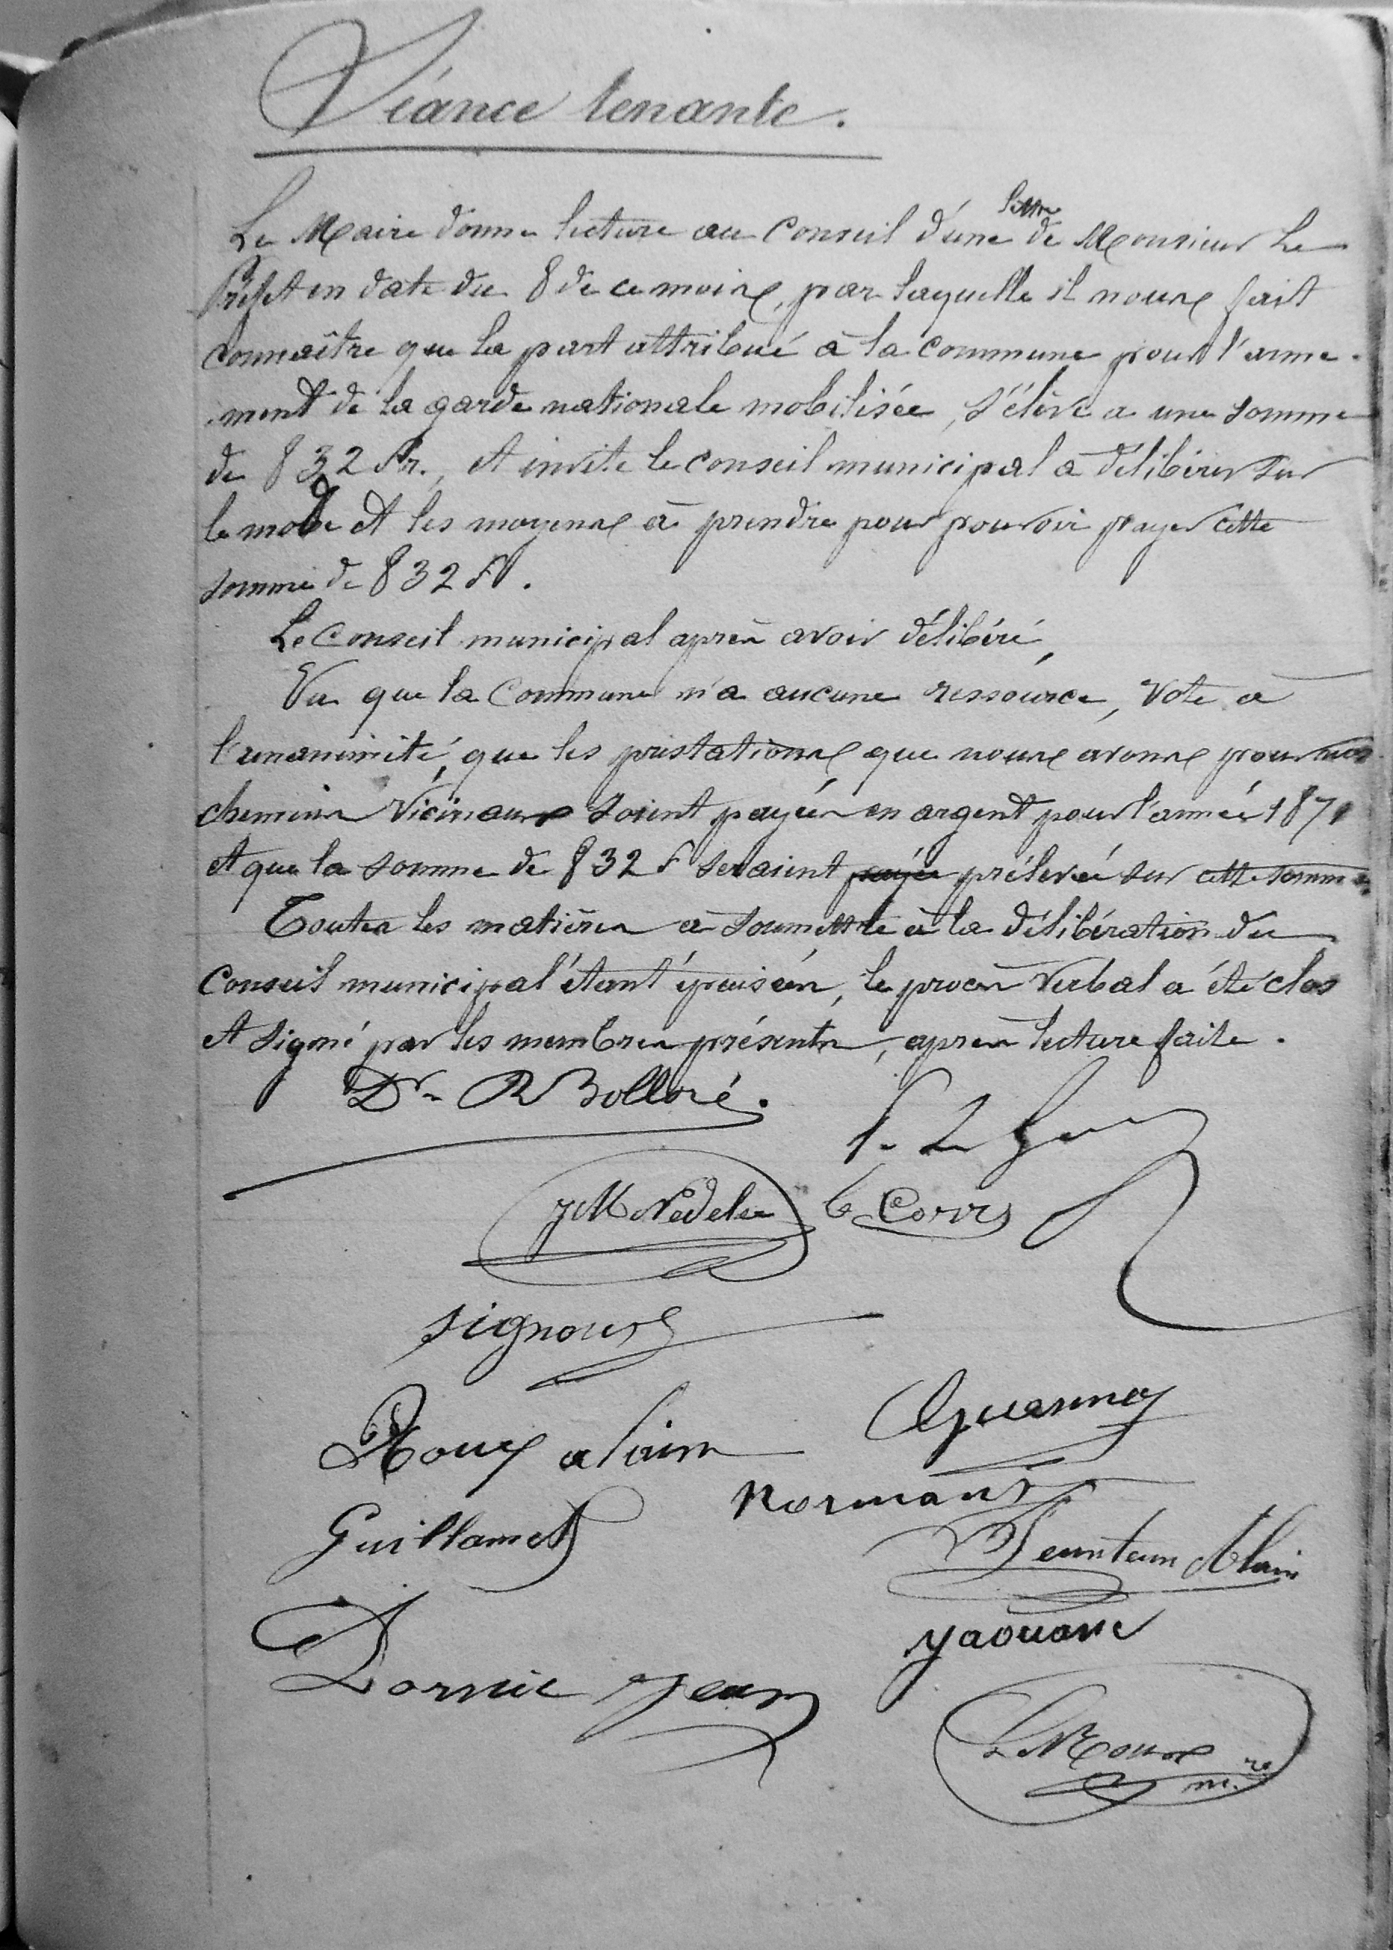 Séance tenante.
Le Maire donne lecture au Conseil d'une lettre de Monsieur Le
Préfet en date du 8 de ce mois, par laquelle il nous fait
Connaître que la part attribué à la commune pour l'arme-
ment de la garde nationale mobilisée, s'élève a une somme
de 832 fr., et invite le conseil municipal a délibérer sur
le mode et les moyens à prendre pour pouvoir payer cette
somme de 832 f.
Le Conseil municipal après avoir délibéré,
Vu que la Commune n'a aucune ressource, Vote a
l'unanimité, que les prestations que nous avons pour nos
chemins Vicinaux soient payées en argent pour l'année 1871
et que la somme de 832 f seraient payée prélevée sur cette somme.
Toutes les matières a soumettre à la délibération du
Conseil municipal étant épuisées, le procès Verbal a été clos
et signé par les membres présents, après lecture faite.
Dr. R Bolloré.
JM Nédelec Le Corre
Signour
Roux alain
Guillamet Normant
Feunteun Alain
yaouanc
Dornic Jean
Le Roux
m. re